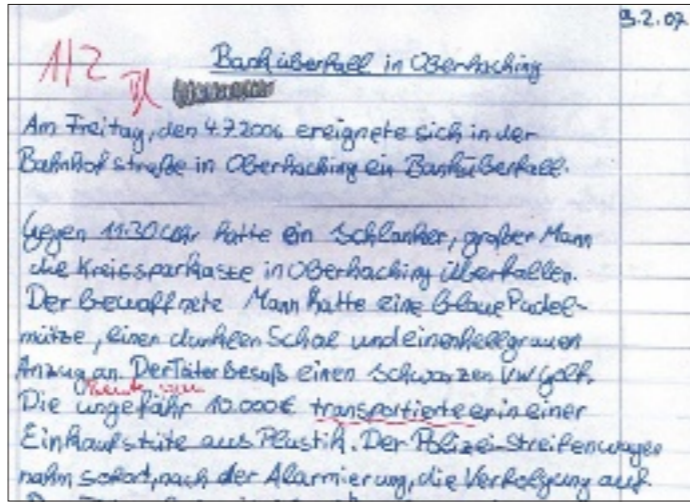 9.2.07
1/2
Banküberfall in Oberhaching
Am Freitag, den 4.7.2006 ereignete sich in der
Bahnhofstraße in Oberhaching ein Banküberfall.
Gegen 11:30 Uhr hatte ein schlanker, großer Mann
die Kreissparkasse in Oberhaching überfallen.
Der bewaffnete Mann hatte eine blaue Pudel-
mütze, einen dunklen Schal und einen hellgrauen
Anzug an. Der Täter besaß einen schwarzen VW Golf.
Die ungefähr 10.000€ transportierte er in einer
Einkaufstüte aus Plastik. Der Polizei-Streifenwagen
nahm sofort, nach der Alarmierung, die Verfolgung auf.